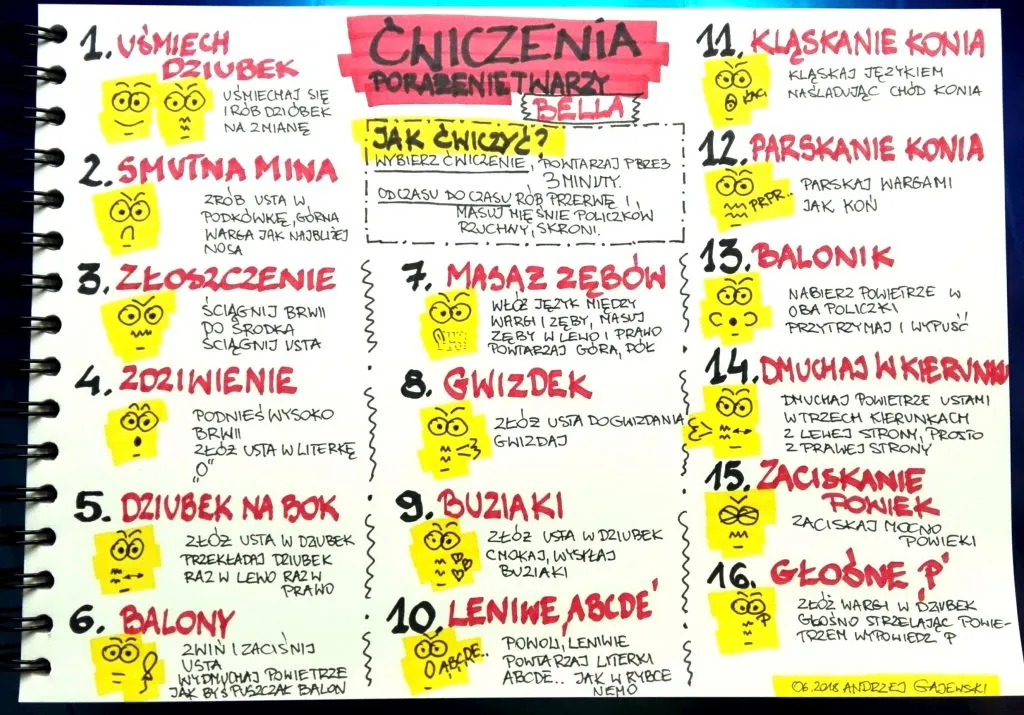 ĆWICZENIA
PORAŻENIE TWARZY
BELLA
JAK ĆWICZYĆ?
WYBIERZ ĆWICZENIE, POWTARZAJ PRZEZ
3 MINUTY.
OD CZASU DO CZASU RÓB PRZERWĘ I
MASUJ MIĘŚNIE POLICZKÓW
RZUCHWY, SKRONI.
1. UŚMIECH
DZIUBEK
UŚMIECHAJ SIĘ
I RÓB DZIÓBEK
NA ZMIANĘ
2. SMUTNA MINA
ZRÓB USTA W
PODKÓWKĘ, GÓRNA
WARGA JAK NAJBLIŻEJ
NOSA
3. ZŁOSZCZENIE
ŚCIĄGNIJ BRWII
DO ŚRODKA
ŚCIĄGNIJ USTA
4. ZDZIWIENIE
PODNIEŚ WYSOKO
BRWII
ZŁÓŻ USTA W LITERKĘ
„O"
5. DZIUBEK NA BOK
ZŁÓŻ USTA W DZIUBEK
PRZEKŁADAJ DZIUBEK
RAZ W LEWO RAZ W
PRAWO
6. BALONY
ZWIŃ I ZACIŚNIJ
USTA
WYDMUCHAJ POWIETRZE
JAK BYŚ PUSZCZAŁ BALON
7. MASAŻ ZĘBÓW
WŁÓŻ JĘZYK MIĘDZY
WARGI I ZĘBY, MASUJ
ZĘBY W LEWO I PRAWO
POWTARZAJ GÓRA, DÓŁ
8. GWIZDEK
ZŁÓŻ USTA DO GWIZDANIA
GWIZDAJ
9. BUZIAKI
ZŁÓŻ USTA W DZIUBEK
CMOKAJ, WYSYŁAJ
BUZIAKI
10. LENIWE „ABCDE"
ABCDE..
POWOLI, LENIWIE
POWTARZAJ LITERKI
ABCDE.. JAK W RYBCE
NEMO
11. KLĄSKANIE KONIA
KLĄSKAJ JĘZYKIEM
NAŚLADUJĄC CHÓD KONIA
12. PARSKANIE KONIA
PRPR..
PARSKAJ WARGAMI
JAK KOŃ
13. BALONIK
NABIERZ POWIETRZE W
OBA POLICZKI
PRZYTRZYMAJ I WYPUŚĆ
14. DMUCHAJ W KIERUNKU
DMUCHAJ POWIETRZE USTAMI
W TRZECH KIERUNKACH
Z LEWEJ STRONY, PROSTO
Z PRAWEJ STRONY
15. ZACISKANIE
POWIEK
ZACISKAJ MOCNO
POWIEKI
16. GŁOŚNE „P"
P
ZŁÓŻ WARGI W DZIUBEK
GŁOŚNO STRZELAJĄC POWIE-
TRZEM WYPOWIEDZ „P
06.2018 ANDRZEJ GAJEWSKI